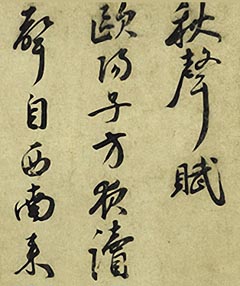 秋聲賦
歐陽子方夜讀
聲自西南來